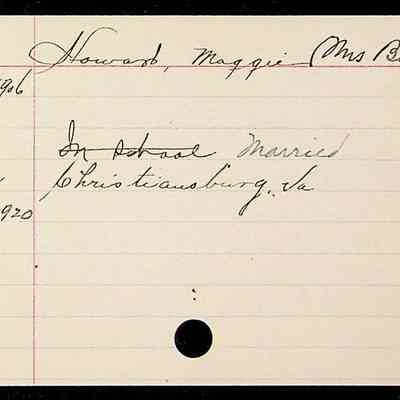 Howard, Maggie (Mrs B
906
In school Married
Christiansburg, Va
920